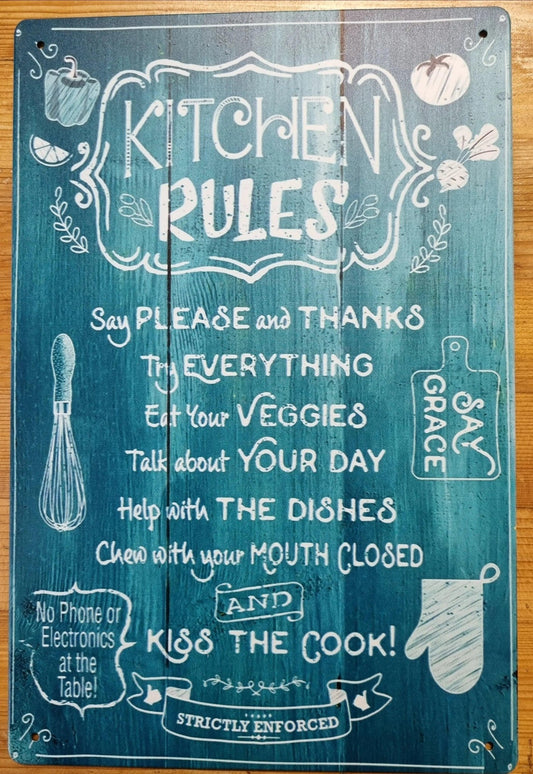 KITCHEN
RULES
Say PLEASE and THANKS
Try EVERYTHING
Eat Your VEGGIES
Talk about YOUR DAY
SAY
GRACE
Help with THE DISHES
Chew with your MOUTH CLOSED
AND
KISS THE COOK!
No Phone or
Electronics
at the
Table!
STRICTLY ENFORCED